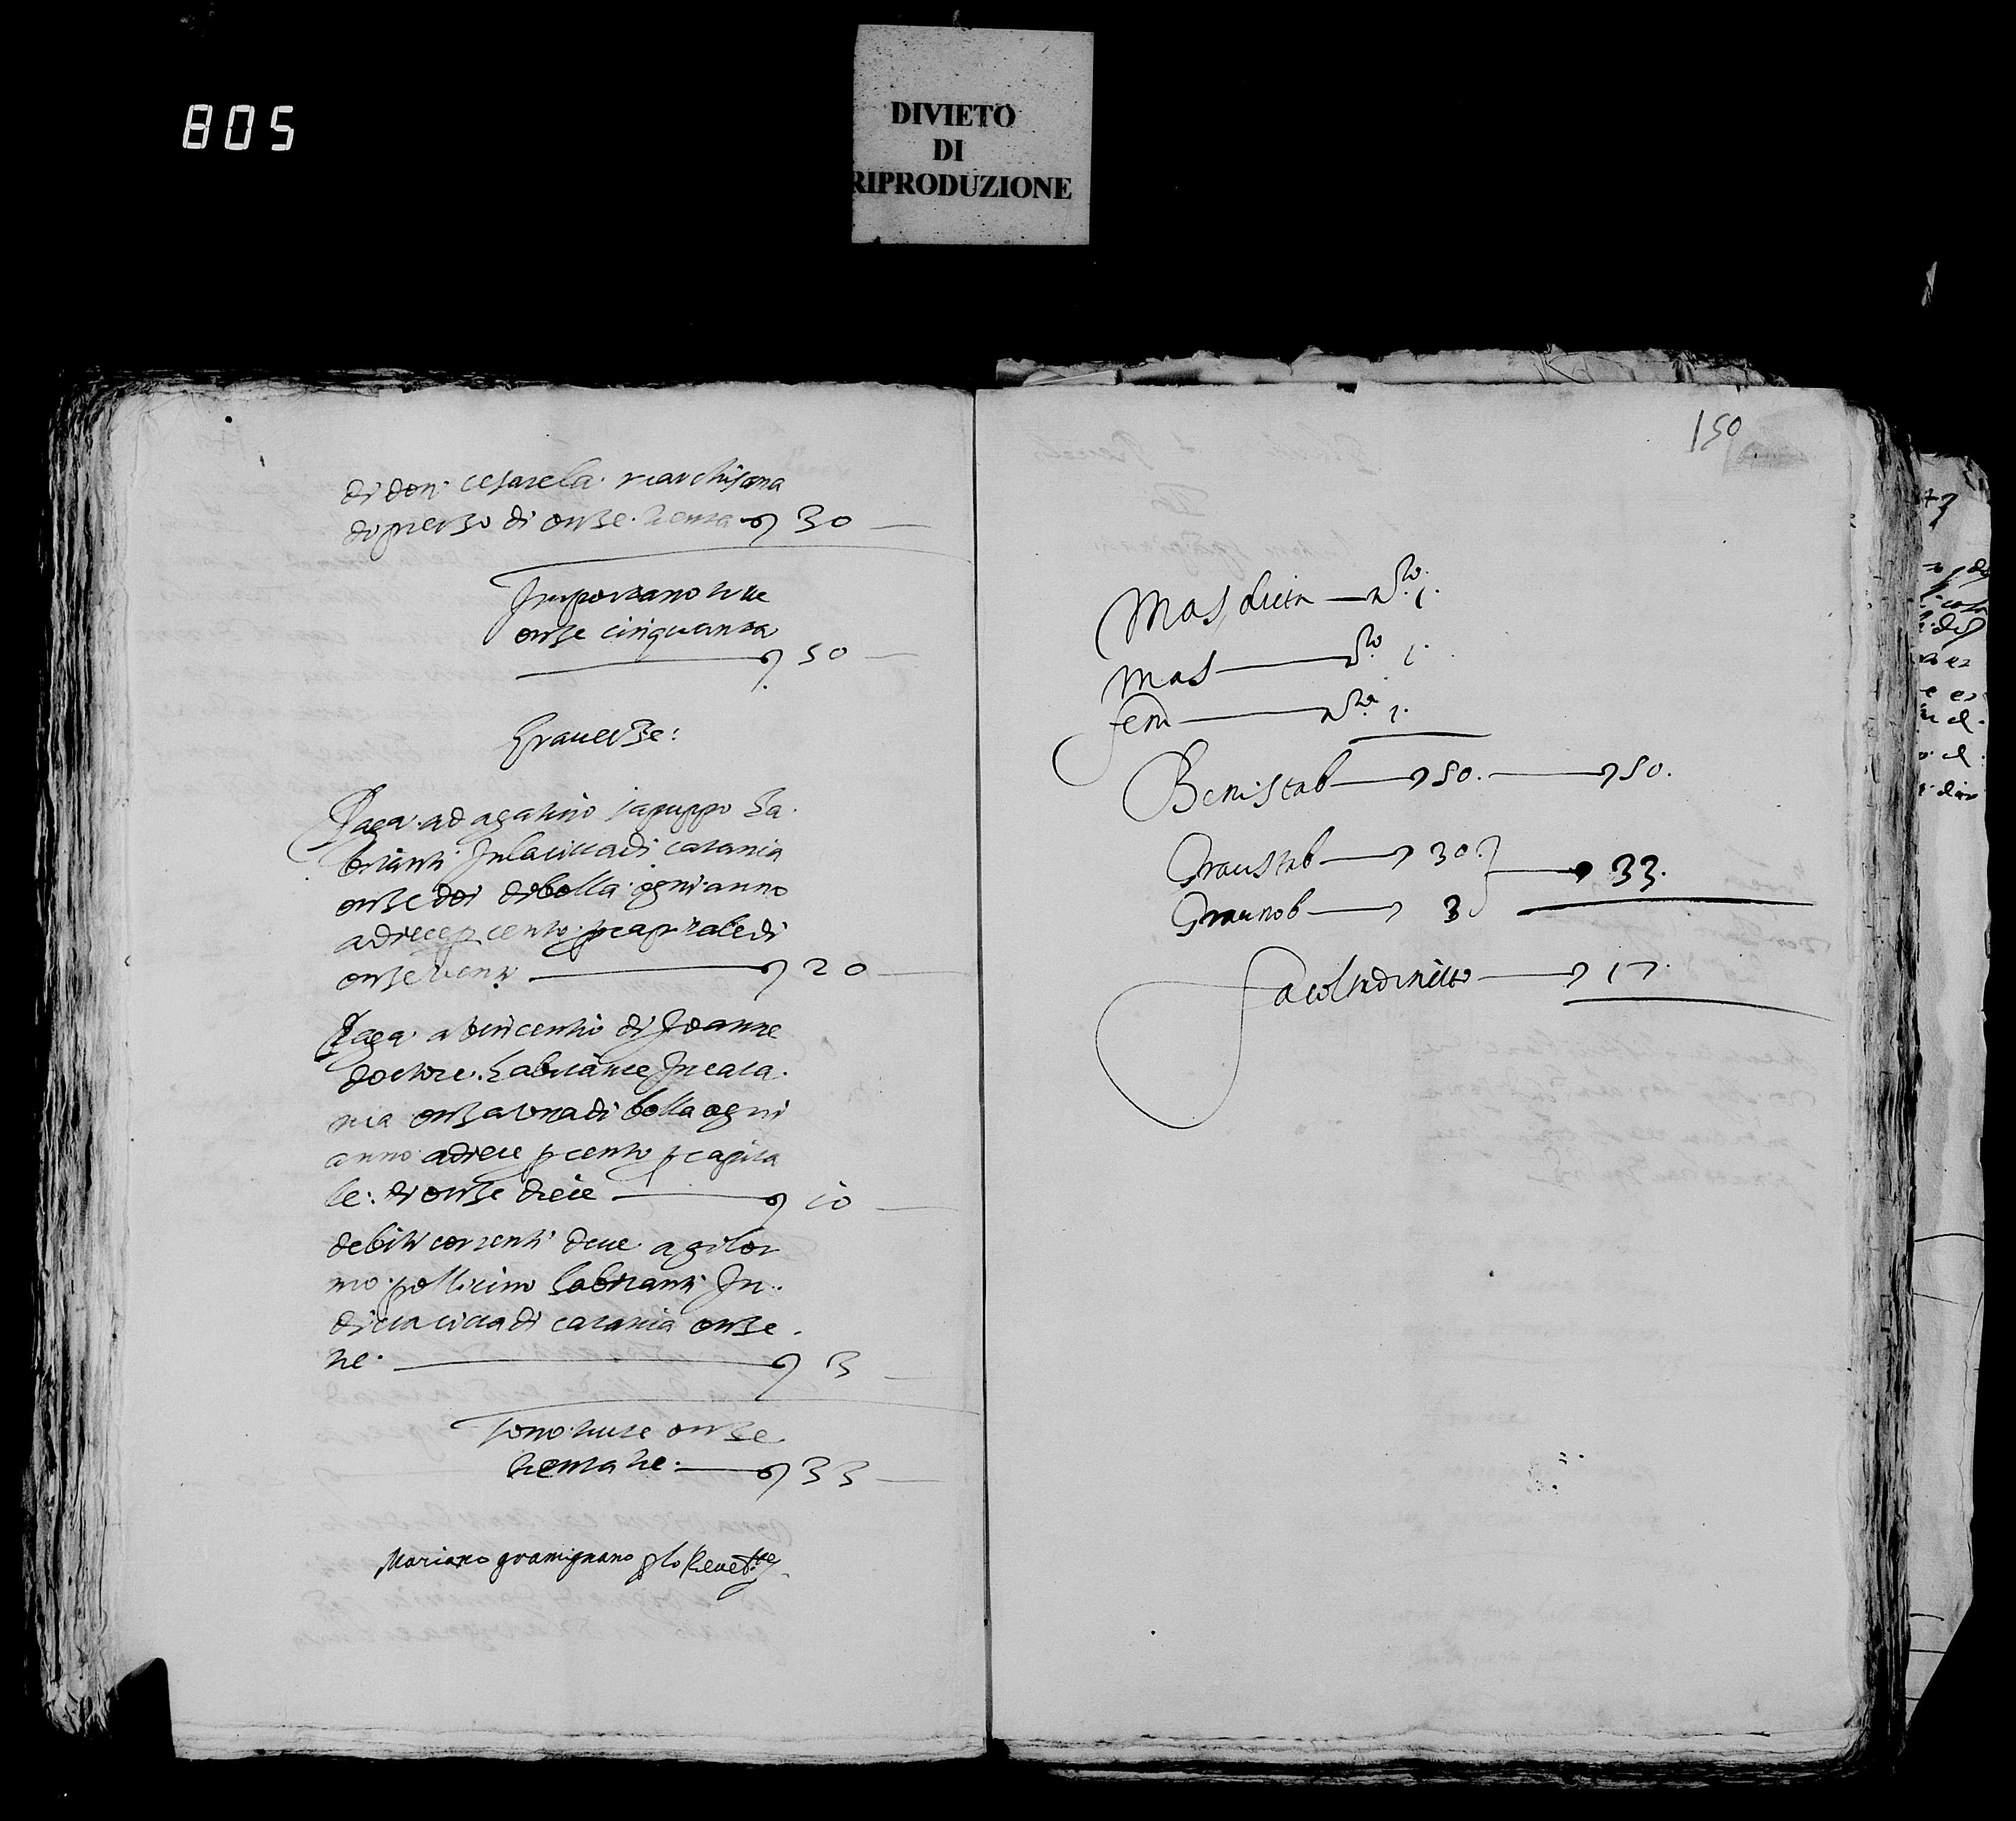 805
DIVIETO
DI
RIPRODUZIONE
di don cesarela marchisana
di prezzo di onze trenta 30
Importano tutte
onze cinquanta
50
Gravezze:
Paga ad agatino iapuppo ha
bitanti In la citta di catania
onze doi di bolla ogni anno
a diece p cento p capitale di
onze venti 20
Paga a vincentio di Joanne
dottore habitante In cata
nia onza una di bolla ogni
anno a diece p cento p capita
le: di onze diece 10
debiti correnti deve a gilor
mo pollicino habitanti In
ditta citta di catania onze
tre. 3
sono tutte onze
trenta tre. 33
Mariano gramignano p lo Revet
150
Mas di eta n.ro 1.
Mas n.ro 1.
fem n.ro 1.
Beni stab 50. 50.
Grau stab 30.
33.
Grau mob 3
facolta di netto 17.